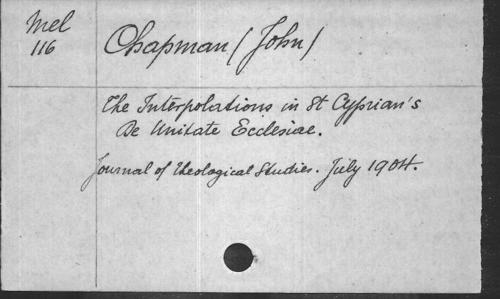 Mel
116
Chapman (John)
The Interpolations in St Cyprian's
De Unitate Ecclesiae.
Journal of Theological Studies. July 1904.